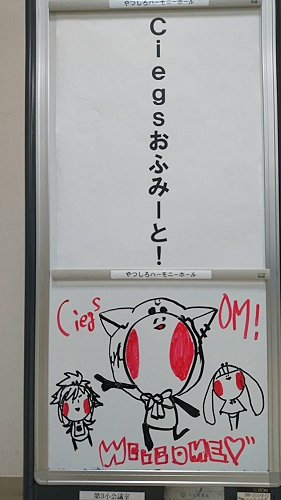 やつしろハーモニーホール
Ciegsおふみーと!
やつしろハーモニーホール
Ciegs OM!
WELCOME♡
第3小会議室